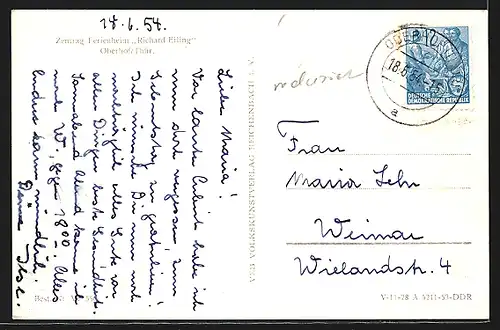 18.6.54.
Zentrag Ferienheim „Richard Eiling"
Oberhof/Thür.
Liebe Maria!
Vor lauter Arbeit habe ich
nun doch vergessen, Dir zum
Geburtstag zu gratulieren!
Ich wünsche Dir nun noch
nachträglich alles Gute, vor
allen Dingen beste Gesundheit.
Sonnabend Abend komme ich
nach W., gegen 1800 –. Alles
andere dann mündlich.
Deine Ilse.
VEB VOLKSKUNSTVERLAG REICHENBACH I. V.
OBERHOF
18.6.54
a
DEUTSCHE
DEMOKRATISCHE REPUBLIK
Frau
Maria Lehr
Weimar
Wielandstr. 4
Best.-Nr.
V-11-28 A 5211-53-DDR